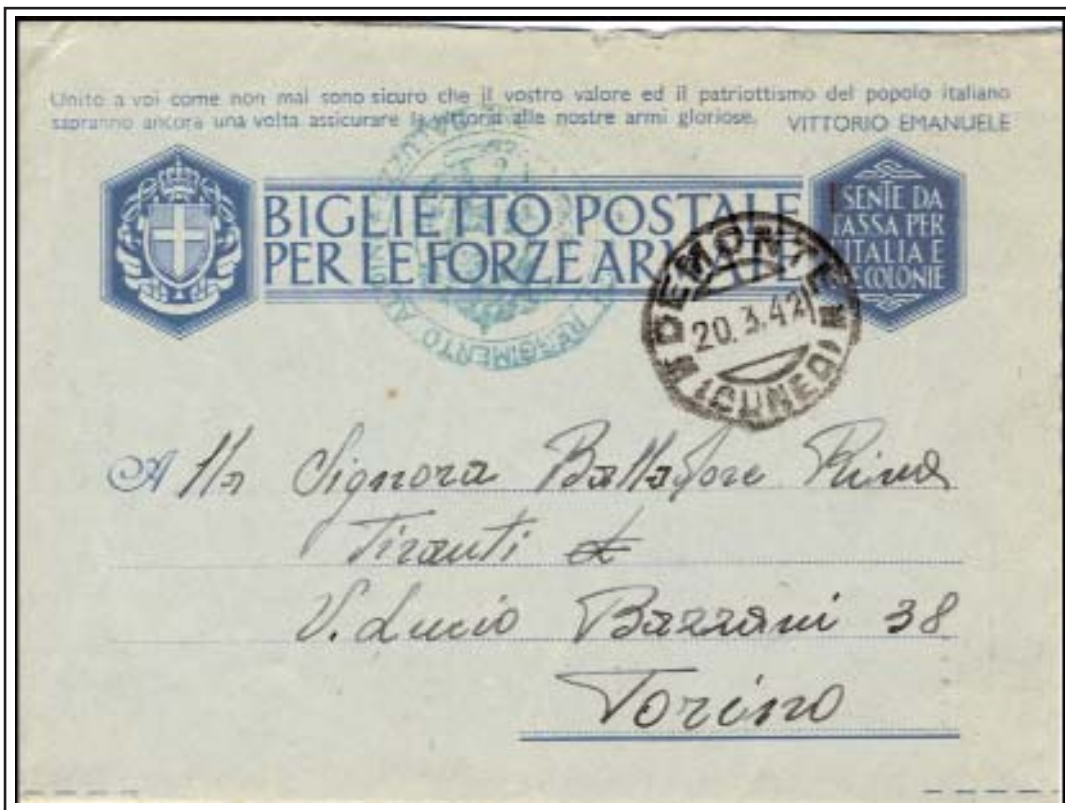 Unito a voi come non mai sono sicuro che il vostro valore ed il patriottismo del popolo italiano
sapranno ancora una volta assicurare la vittoria alle nostre armi gloriose. VITTORIO EMANUELE
BIGLIETTO POSTALE
PER LE FORZE ARMATE
ESENTE DA
TASSA PER
L'ITALIA E
LE COLONIE
REGGIMENTO
DEMONTE
20.3.42
(CUNEO)
Alla Signora Ballatore Rina
Tiranti
V. Lucio Bazzani 38
Torino